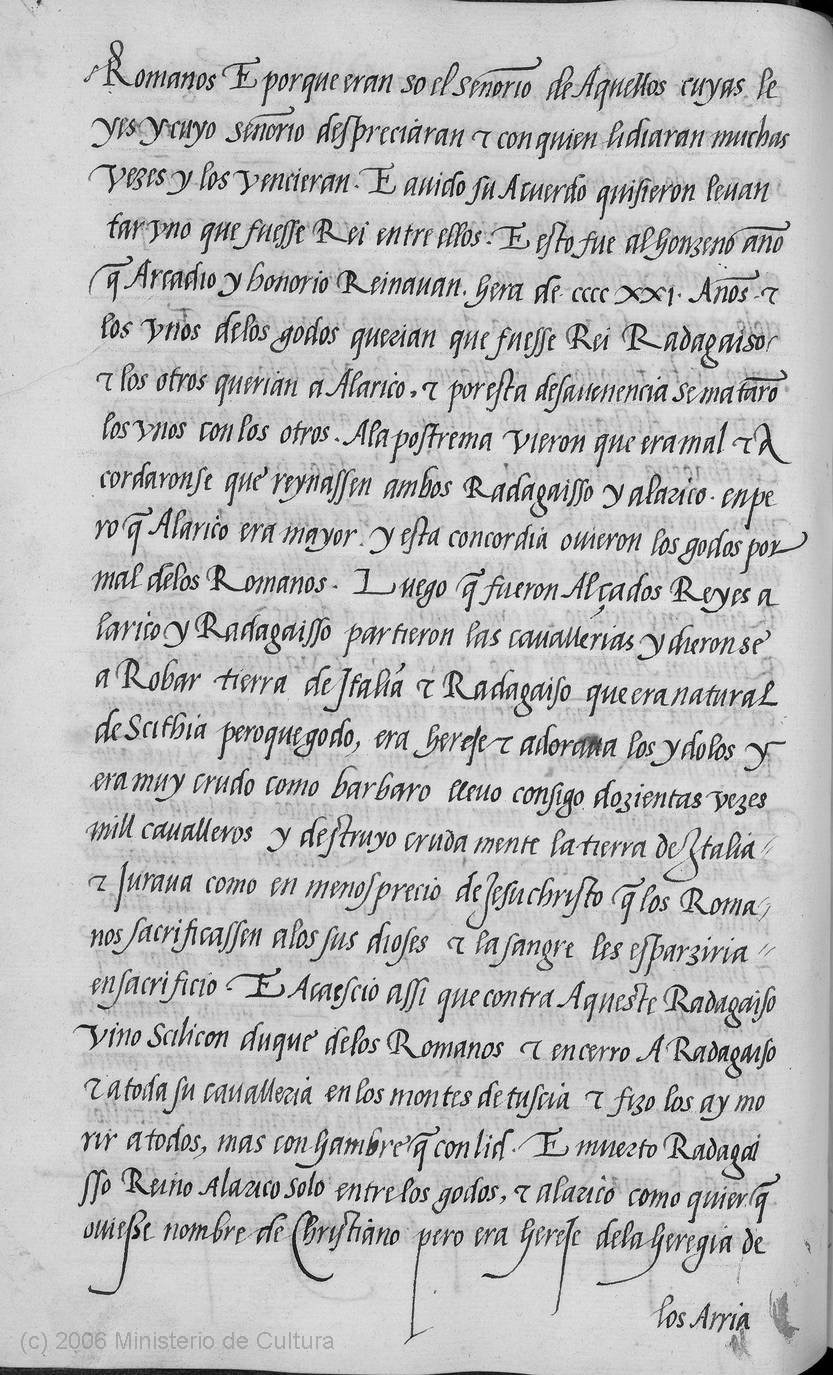 Romanos E porque eran so el señorio de Aquellos cuyas le
yes y cuyo señorio despreciaran τ con quien lidiaran muchas
vezes y los vencieran. E auido su Acuerdo quisieron levan
tar vno que fuesse Rei entre ellos. E esto fue al honzeno año
q̃ Arcadio y honorio Reinauan. hera de cccc XXI. Años τ
los vnos delos godos querian que fuesse Rei Radagaiso
τ los otros querian a Alarico, τ por esta desauenencia se matarõ
los vnos con los otros. Ala postrema vieron que era mal τ A
cordaronse que reynassen ambos Radagaisso y alarico. enpe
ro q̃ Alarico era mayor. y esta concordia ouieron los godos por
mal delos Romanos. Luego q̃ fueron Alçados Reyes a
larico y Radagaisso partieron las cavallerias y dieronse
a Robar tierra de Italia τ Radagaiso que era natural
de Scithia pero que godo, era hereje τ adoraua los ydolos y
era muy crudo como barbaro llevo consigo dozientas vezes
mill cavalleros y destruyo cruda mente la tierra de Italia
τ Juraua como en menosprecio de Jesuchristo q̃ los Roma
nos sacrificassen alos sus dioses τ la sangre les esparziria
en sacrificio. E Acaescio assi que contra Aqueste Radagaiso
vino Scilicon duque delos Romanos τ encerro A Radagaiso
τ a toda su cavalleria en los montes de tuscia τ fizo los ay mo
rir a todos, mas con hambre q̃ con lid. E muerto Radagai
sso Reino Alarico solo entre los godos, τ alarico como quier q̃
ouiesse nombre de Christiano pero era hereje dela heregia de
los Arria
(c) 2006 Ministerio de Cultura